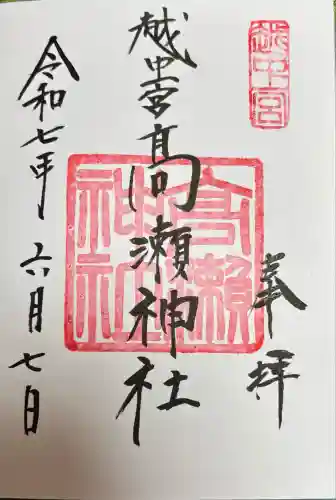 越中宮
奉拝
越中宮高瀬神社
高瀬神社
令和七年六月七日